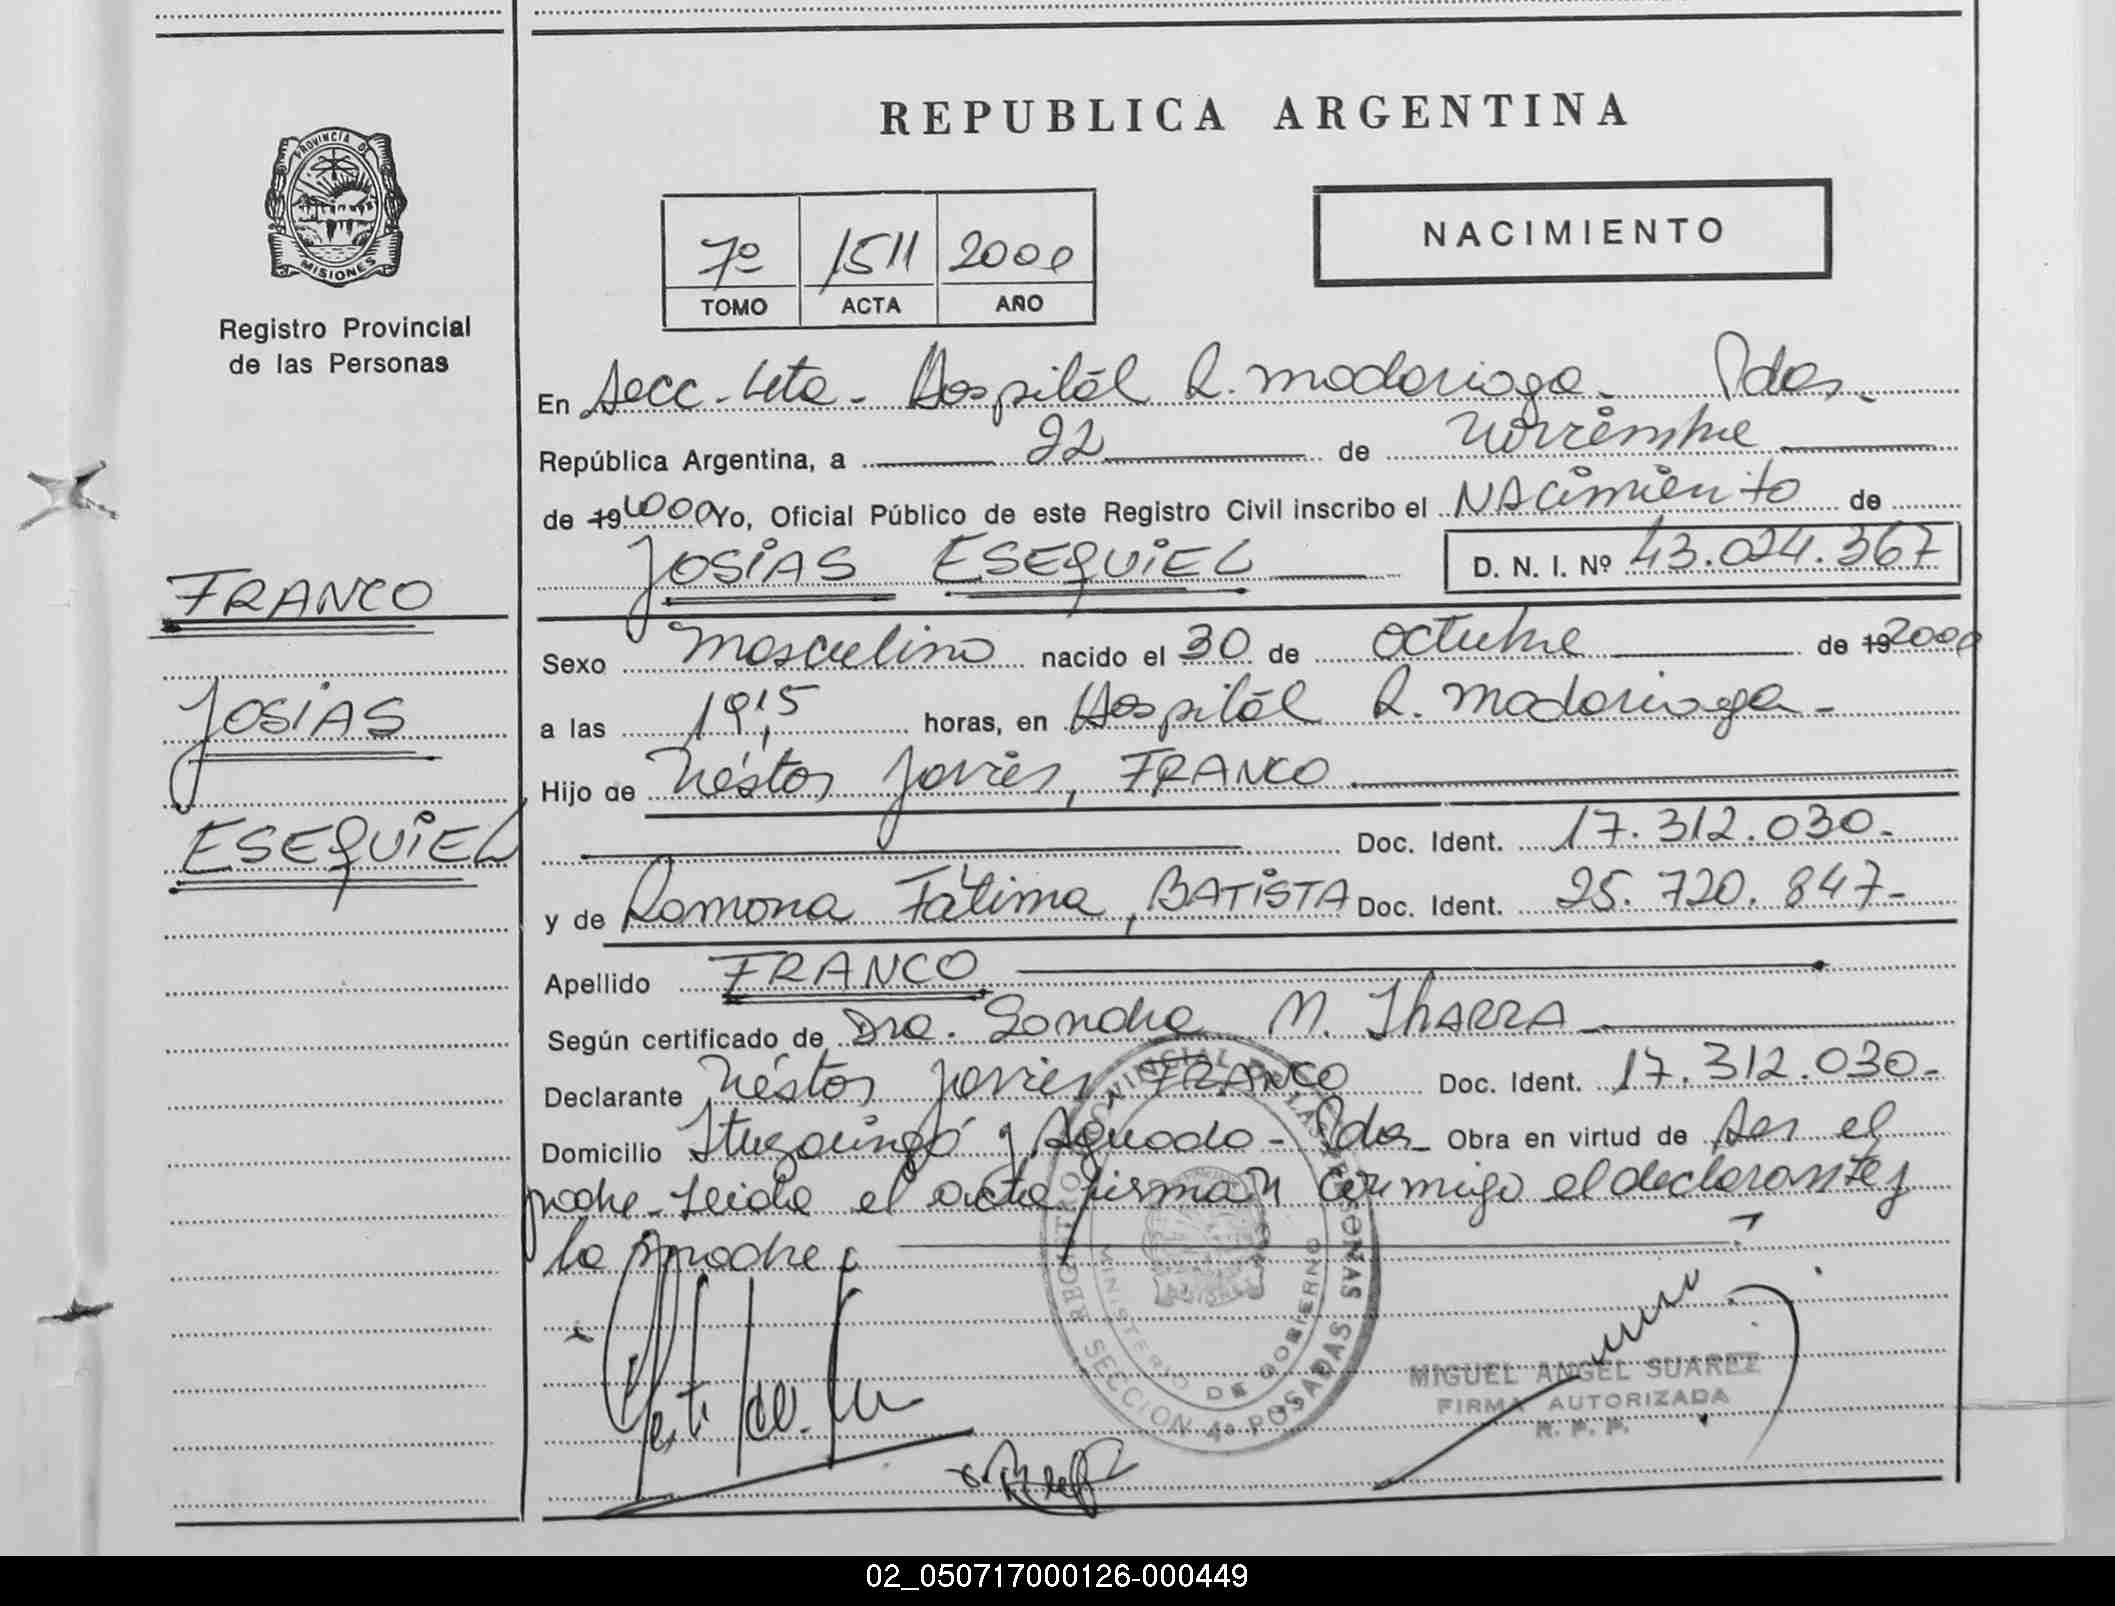 REPUBLICA ARGENTINA
PROVINCIA DE
MISIONES
Registro Provincial
de las Personas
7º 1511 2000
TOMO ACTA AÑO
NACIMIENTO
En Secc. 4ta. Hospitál R. Madariaga. Pdas.
República Argentina, a 22 de Noviembre
de 19 2000 Yo, Oficial Público de este Registro Civil inscribo el NAcimiento de
JOSIAS ESEQUIEL D. N. I. Nº 43.024.367
FRANCO
JOSIAS
ESEQUIEL
Sexo Masculino nacido el 30 de octubre de 19 2000
a las 19,15 horas, en Hospitál R. Madariaga-
Hijo de Néstor Javier, FRANCO
Doc. Ident. 17.312.030-
y de Ramona Fátima, BATISTA Doc. Ident. 25.720.847-
Apellido FRANCO
Según certificado de Dra. Sandra M. IbARRA
Declarante Néstor Javier FRANCO Doc. Ident. 17.312.030-
Domicilio Ituzaingó y Aguado - Pdas Obra en virtud de ser el
padre. Leida el acta firman conmigo el declarante y
la madre
REGISTRO PROVINCIAL DE LAS PERSONAS
MINISTERIO DE GOBIERNO
SECCION 4º POSADAS
MIGUEL ANGEL SUAREZ
FIRMA AUTORIZADA
R. P. P.
02_050717000126-000449